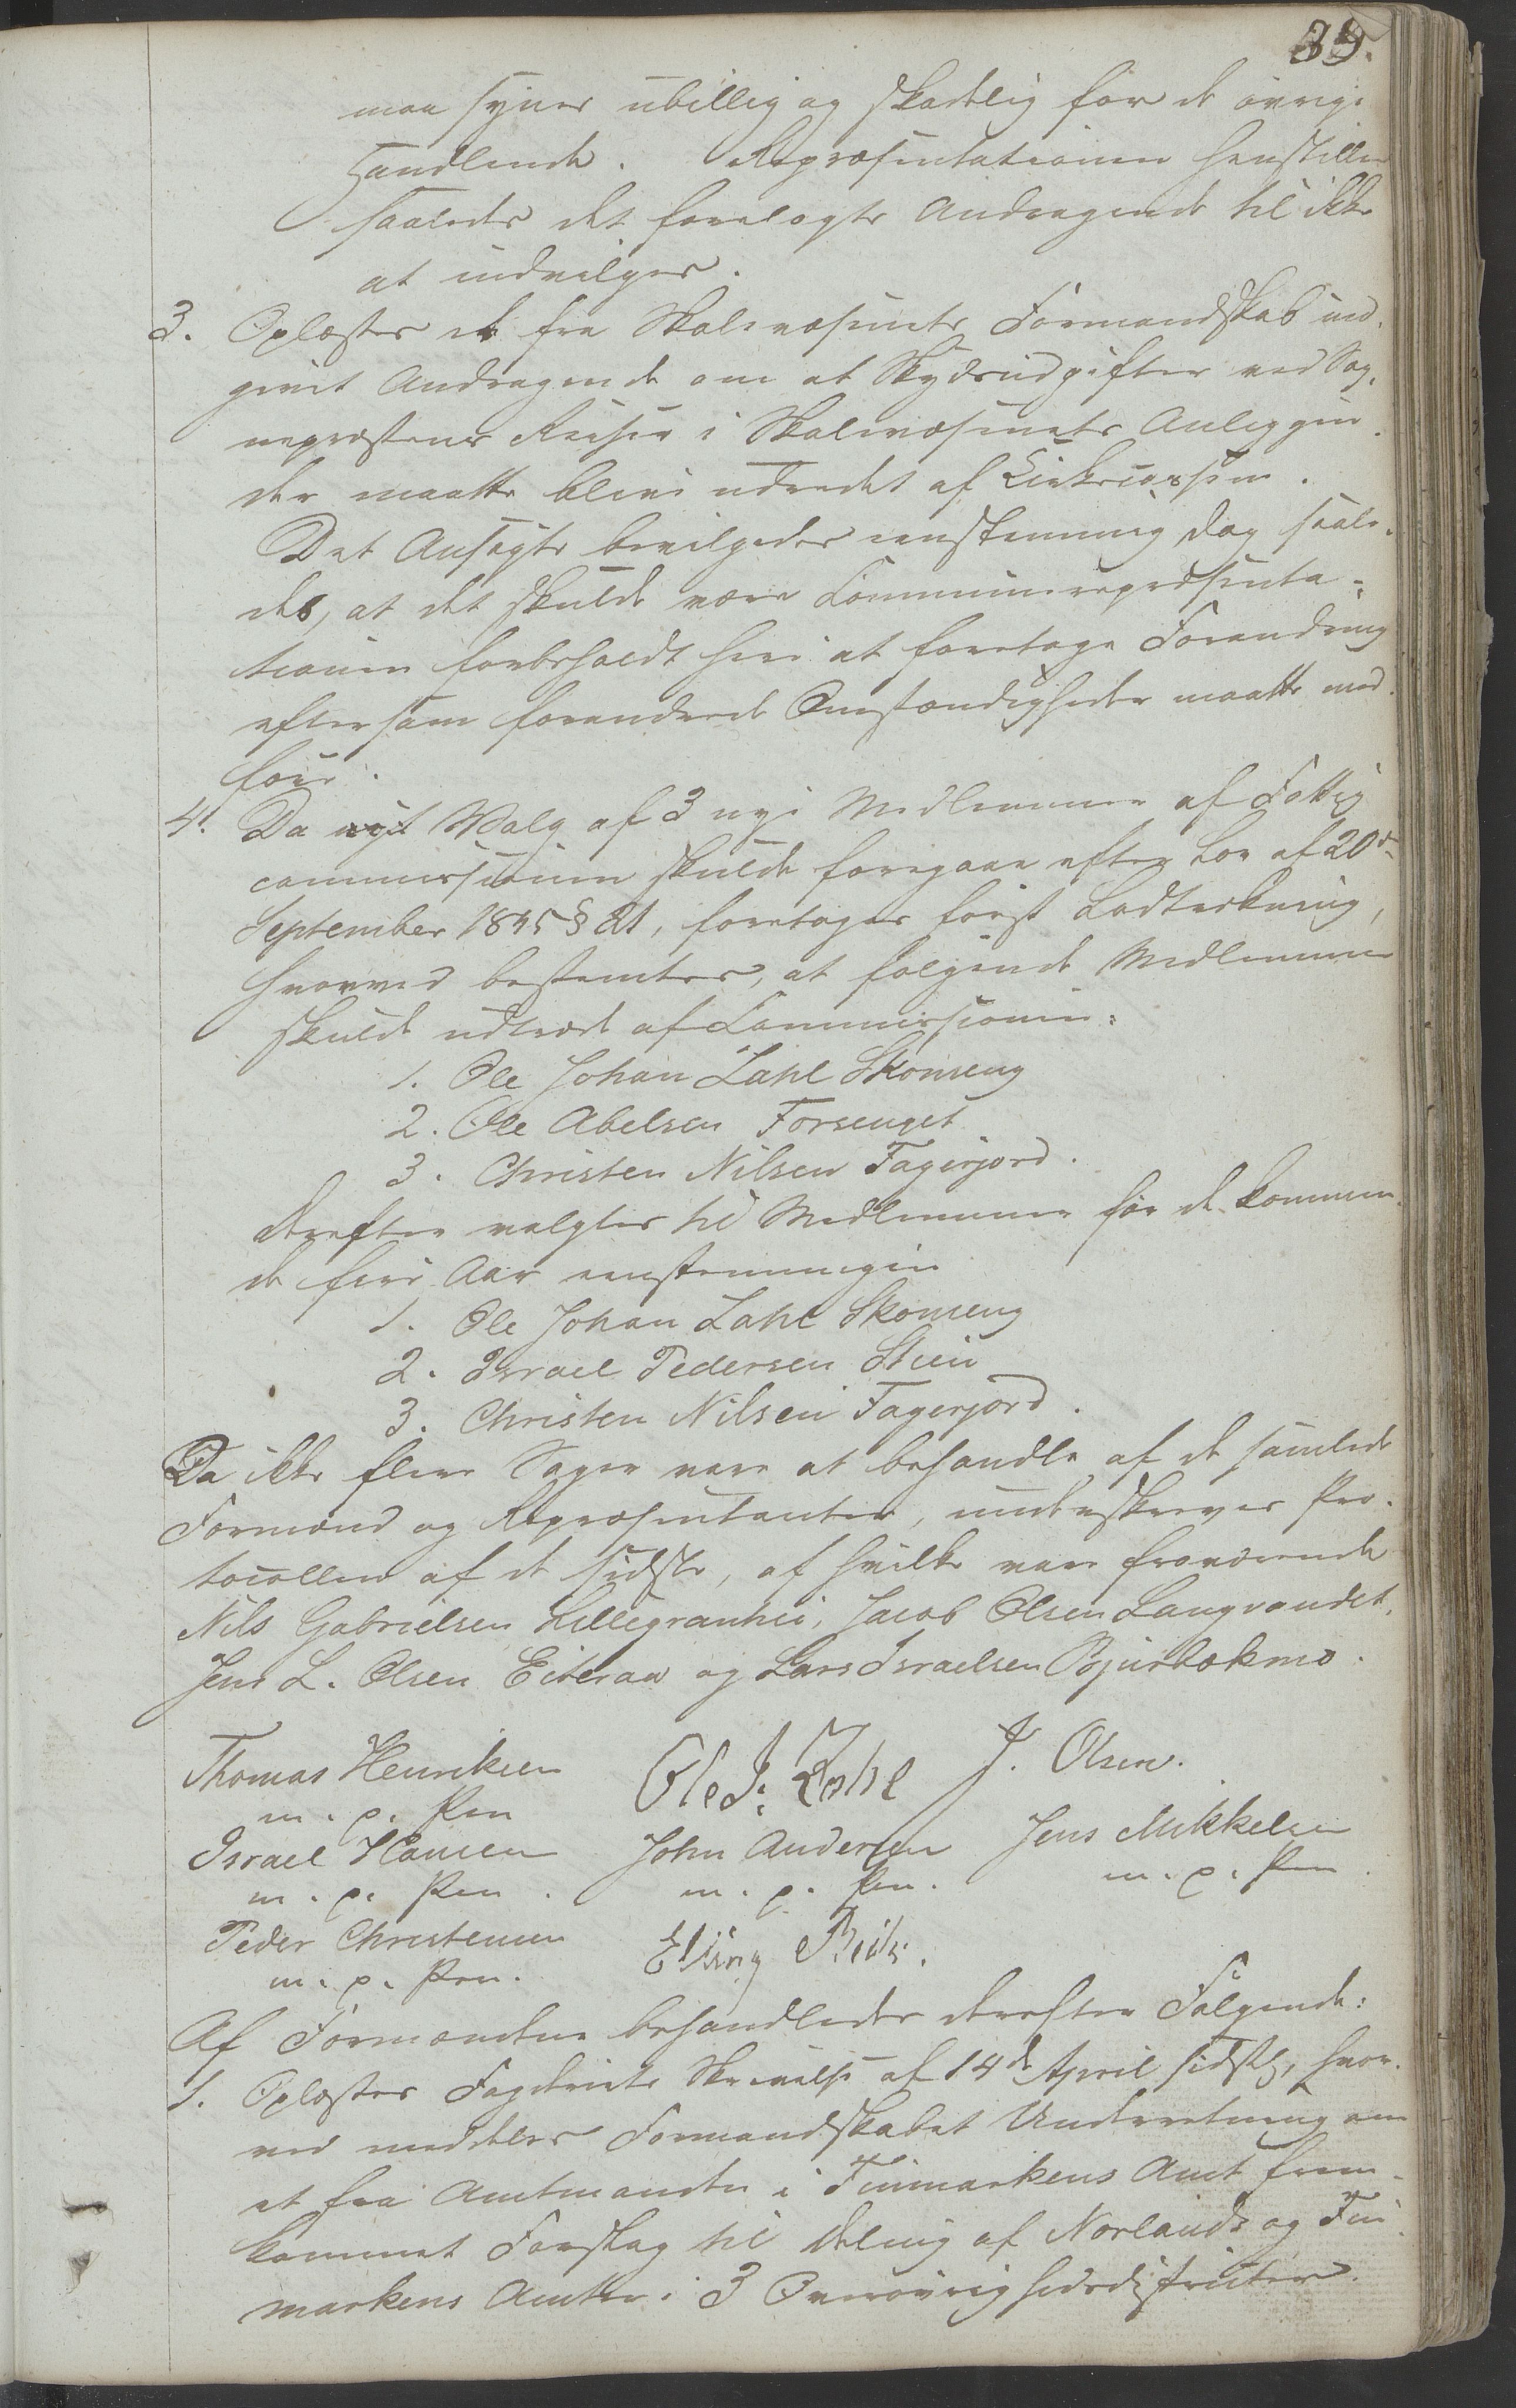 39.
man synes ubillig og skadelig for de øvrige
Handlende. Repræsentationen henstiller
saaledes det forelagte Andragende til ikke
at indvilges.
3. Oplæstes et fra Skolevæsenets Formandskab ind-
givet Andragende om at Skydsudgifter ved Sog-
nepræstens Reiser i Skolevæsenets Anliggen-
der maatte blive udredet af
Det Ansøgte bevilgedes eenstemmig dog saale-
des, at det skulde være Communerepræsenta-
tionen forbeholdt heri at foretage Forandring
eftersom forandrede Omstændigheder maatte med-
føre.
4. Da nyt Valg af 3 nye Medlemmer af Fattig
commissionen skulde foregaae efter Lov af 20de
September 1845 § 21, foretoges først Lodtrækning,
hvorved bestemtes, at følgende Medlemmer
skulde udtræde af Commissionen:
1. Ole Johan Zahl Skonseng
2. Ole Abelsen Forsenget
3. Christen Nilsen Fagerjord.
derefter valgtes til Medlemmer for de kommen-
de fire Aar eenstemmigen
1. Ole Johan Zahl Skonseng
2. Israel Pedersen Stien
3. Christen Nilsen Fagerjord.
Da ikke flere Sager vare at behandle af de samlede
Formænd og Repræsentanter, underskreves Pro-
tocollen af de sidste, af hvilke vare fraværende
Nils Gabrielsen Lillegranhei, Jacob Olsen Langvandet,
Jens L. Olsen Eiteraa og Lars Israelsen Bjurbækmo.
Thomas Henriksen Ole J. Zahl J. Olsen.
m. p. Pen
Israel Hansen John Andersen Jens Mikkelsen
m. p. Pen. m. p. Pen. m. p. Pen.
Peder Christensen Elling
m. p. Pen.
Af Formændene behandledes derefter Følgende:
1. Oplæstes Fogderiets Skrivelse af 14de April sidstl, hvor-
ved meddeles Formandskabet Underretning om
et fra Amtmanden i Finmarkens Amt frem-
kommet Forslag til Deling af Norlands og Fin-
markens Amter i 3 Overøvrighedsdistricter.